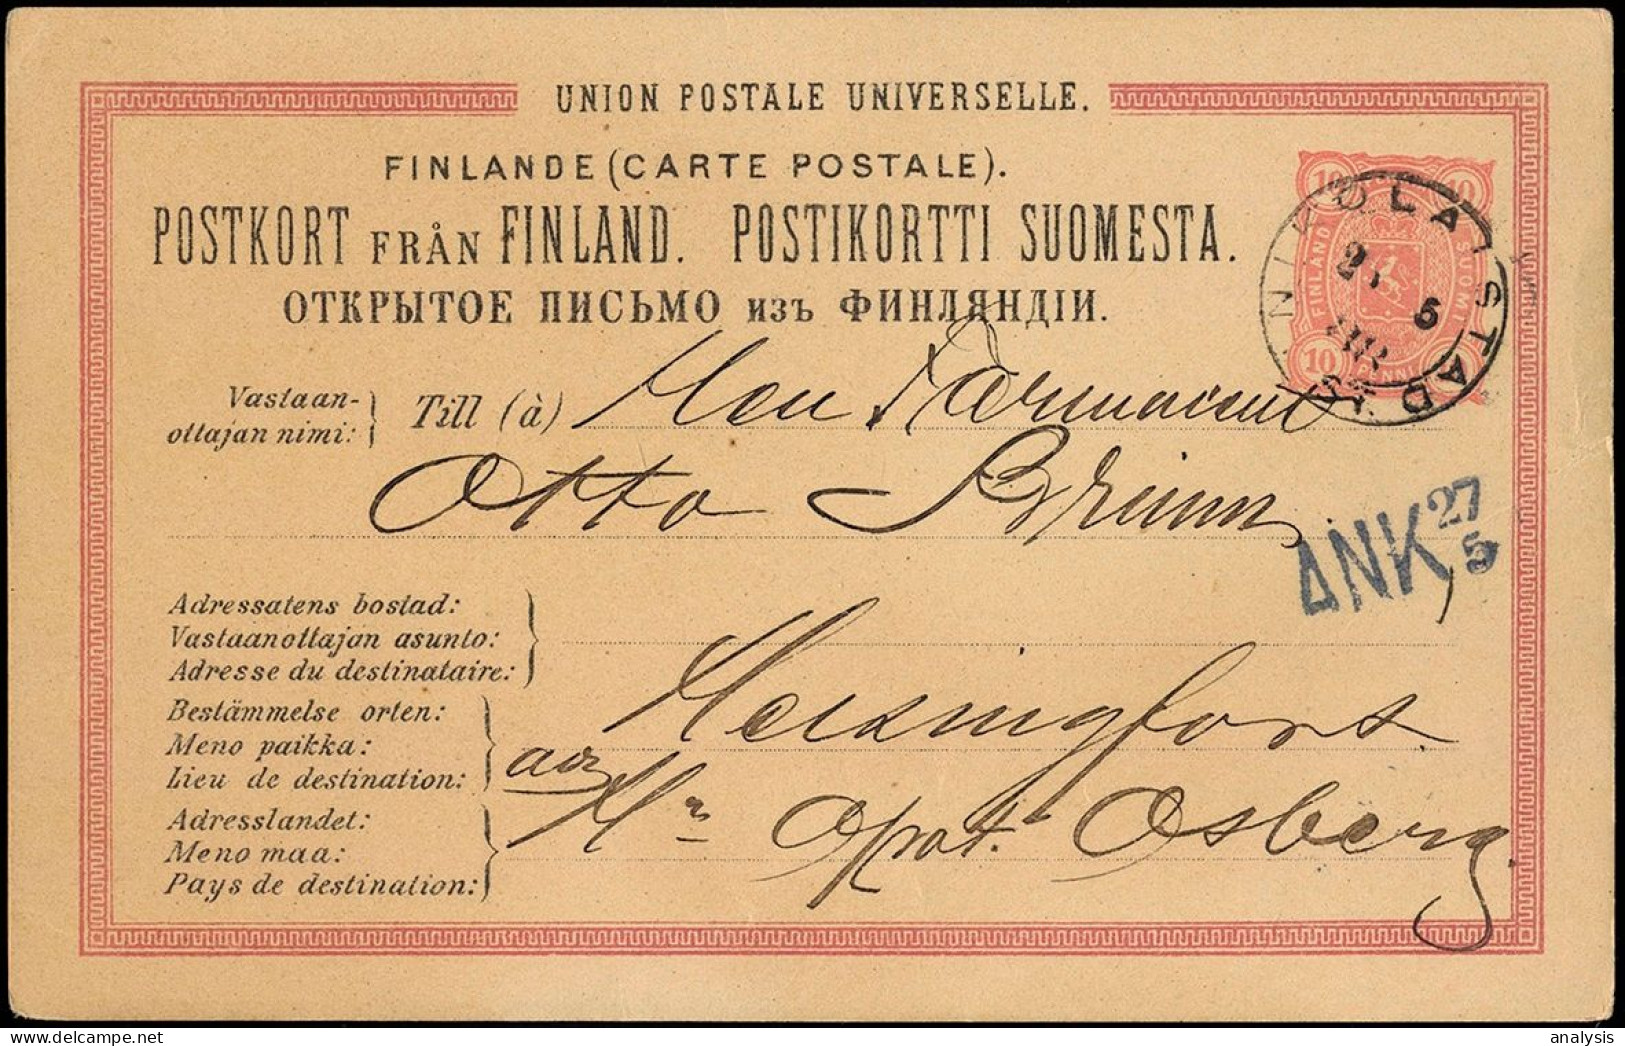 UNION POSTALE UNIVERSELLE.
FINLANDE (CARTE POSTALE).
POSTKORT FRÅN FINLAND. POSTIKORTTI SUOMESTA.
ОТКРЫТОЕ ПИСЬМО изъ ФИНЛЯНДІИ.
10 10
FINLAND SUOMI
10 PENNI
NIKOLAISTAD
5
Vastaan-
ottajan nimi:
Till (à)
Otto
ANK 27/5
Adressatens bostad:
Vastaanottajan asunto:
Adresse du destinataire:
Bestämmelse orten:
Meno paikka:
Lieu de destination:
Helsingfors
Adresslandet:
Meno maa:
Pays de destination:
Hr Apot. Osberg.
analysis